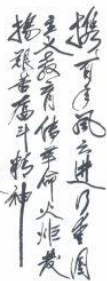 携百年风云进行爱国
主义教育传革命火炬发
扬艰苦奋斗精神